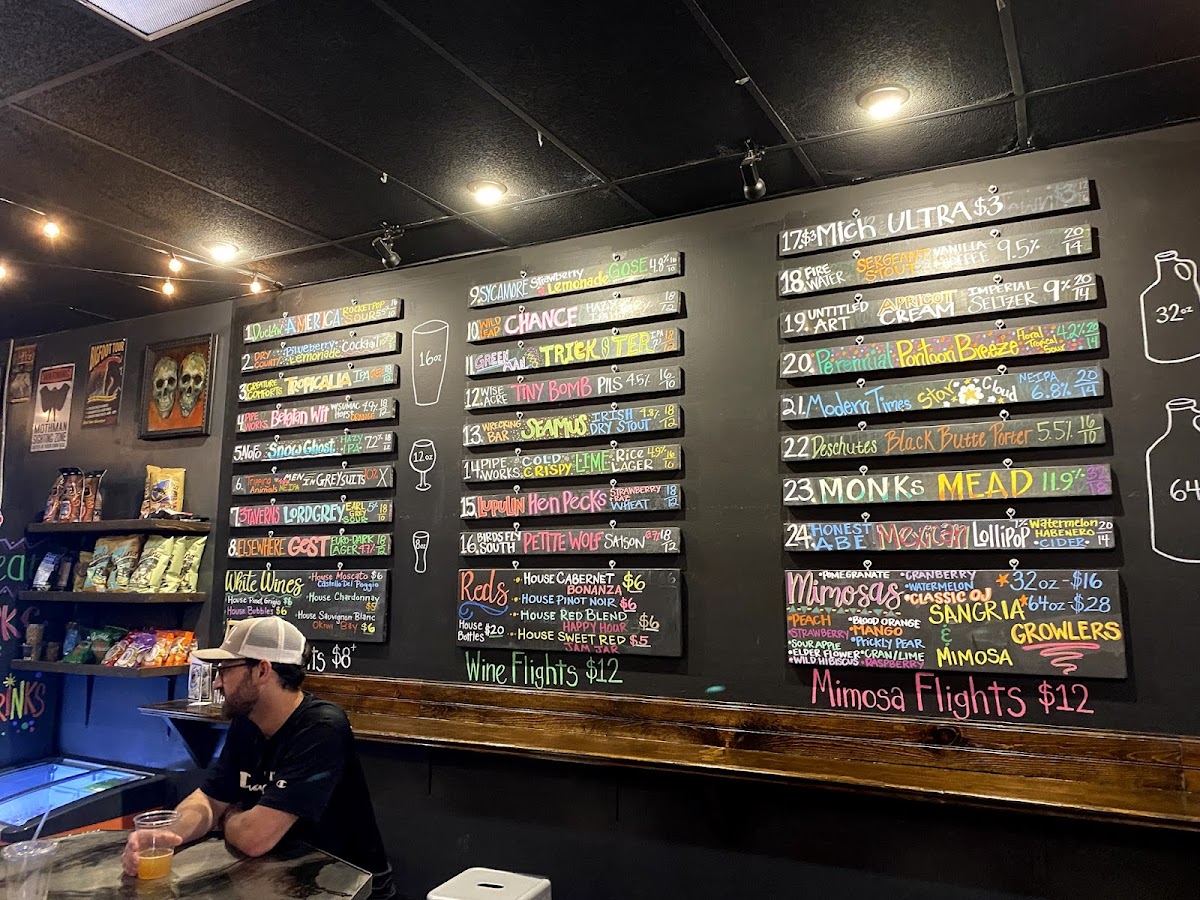 1. Duclaw AMERICA ROCKETPOP SOUR
2. DRY COUNTY Blueberry Lemonade Cocktail
3. CREATURE COMFORTS TROPICALIA IPA
4. PIPE WORKS Belgian Wit W/SUMAC 4.9%
5. NoFo Snow Ghost HAZY IPA 7.2% 18/12
6. Tropical Animals IN GREY SUITS 10% X
7. 3TAVERNS LORDGREY EARL GREY SOUR 18/12
8. ELSEWHERE GEST EURO-DARK LAGER
White Wines
House Pinot Grigio $6
House Bubbles $6
• House Moscato $6
Castello Del Poggio
• House Chardonnay $5
• House Sauvignon Blanc
Okiwi Bay $6
16oz
12oz
8oz
9. SYCAMORE Strawberry Lemonade GOSE 4.8% 16/10
10. WILD LEAP CHANCE HAZY 18/12
11. GREEN TRICKSTER IPA 7% 18/12
12. WISE ACRE TINY BOMB PILS 4.5% 16/10
13. WRECKING BAR SEAMUS IRISH DRY STOUT 4.3% 18/12
14. PIPE WORKS COLD CRISPY LIME Rice LAGER 4.9% 16/10
15. LUPULIN Hen Pecks STRAWBERRY WHEAT 18/12
16. BIRDSFLY SOUTH PETITE WOLF SAISON 18/12
Reds
House Bottles $20
• HOUSE CABERNET $6
BONANZA
• HOUSE PINOT NOIR $6
• HOUSE RED BLEND $6
HAPPY HOUR
• HOUSE SWEET RED $5
JAM JAR
Wine Flights $12
17. $3 MICK ULTRA $3
18. FIRE WATER SERGEANT STOUT VANILLA COFFEE 9.5% 20/14
19. UNTITLED ART APRICOT CREAM IMPERIAL SELTZER 9% 20/14
20. Perennial Pontoon Breeze Floral Tropical Sour 4.2% 20/14
21. Modern Times Star Cloud NEIPA 6.8% 20/14
22. Deschutes Black Butte Porter 5.5% 16/10
23. MONKs MEAD 11.9%
24. HONEST ABE Mexican Lollipop Watermelon HABENERO • CIDER • 20/14
Mimosas
• POMEGRANATE
• CRANBERRY
• WATERMELON
• CLASSIC OJ
• PEACH
• BLOOD ORANGE
STRAWBERRY
• MANGO
• SOUR APPLE
• PRICKLY PEAR
• ELDER FLOWER
• CRAN/LIME
• WILD HIBISCUS
• RASPBERRY
SANGRIA
&
MIMOSA
32oz - $16
64oz - $28
GROWLERS
Mimosa Flights $12
32oz
64
BIGFOOT TOUR
MOTHMAN
SIGHTING ZONE
ts $8+
RINKS